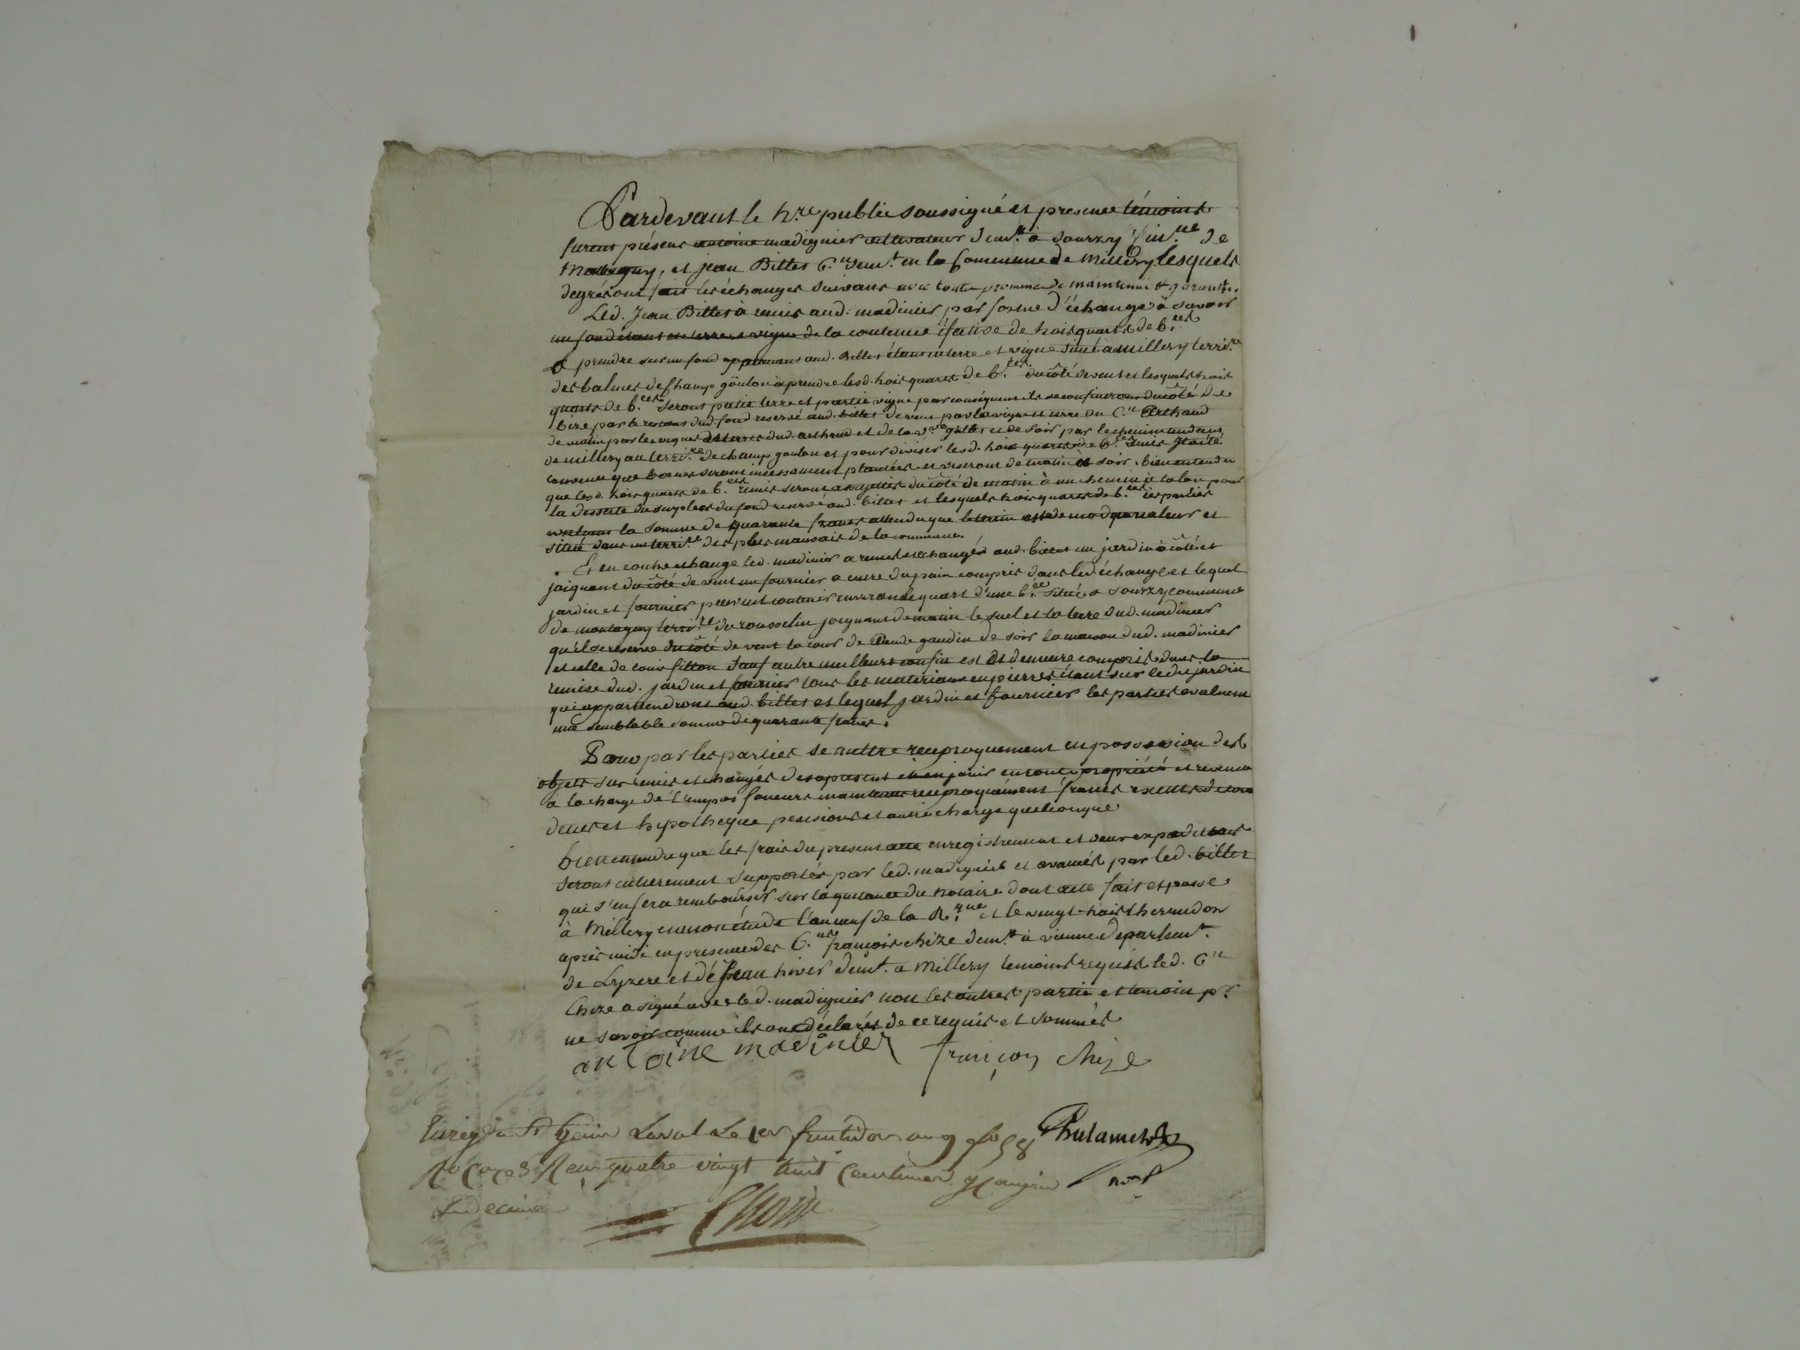 Pardevant le n.re public soussigné et presence temoins
furent présens antoine madignier cultivateur dem.t à Sourzy C.une de
Montagny, et jean Billet C.n dem.t en la Commune de Millery lesquels
degrés ont fait les échanges suivans avec toute promesse de maintenue et garantie.
Led. Jean Billet à remis aud. madinier par forme d'échange à savoir
un fond étant en terre et vigne de la contenue éfective de trois quarts de b.ées
à prendre sur un fond appartenant aud. Billet étant en terre et vigne situé à Millery terri.re
des balmes de Champ goulon à prendre lesd. trois quarts de b.ées du côté de vent et lesquels trois
quarts de b.ées seront partie terre et partie vigne par conséquent ils se confineront du côté de
bize par le restant dud. fond reservé aud. billet de vent par la vigne et terre du C.en Arthaud
de matin par les vignes et terres dud. arthaud et de la v.ve gillet et de soir par le chemin tendant
de millery au terri.re de champ goulon et pour diviser lesd. trois quarts de b.ées remis il a été
convenu que bornes seront incessamment plantées et viseront de matin à soir, bien entendu
que lesd. trois quarts de b.ées remis seront assujettis du côté de matin à un chemin à talon pour
la desserte du surplus du fond reservé aud. billet et lesquels trois quarts de b.ées les parties
evaluent la somme de quarante francs attendu que le terrein est de modique valeur et
situé dans un terri.re des plus mauvais de la commune.
Et en contre échange led. madinier a remis et échangé aud. billet un jardin à côté et
joignant du côté de vent un fournier a cuire du pain compris dans led. échange et lequel
jardin et fournier peuvent contenir environ le quart d'une b.ée situé a Sourzy commune
de montagny terri.re du rousselin joignant de matin le suel et la terre dud. madinier
qu'il se reserve du côté de vent la cour de Claude gaudin de soir la maison dud. madinier
et celle de louis fitton sauf autre meilleurs confin est et demeure compris dans la
remise dud. jardin et fournier tous les materiaux en pierres étant sur ledit jardin
qui appartiendront aud. billet et lequel jardin et fournier les parties evaluent
une semblable somme de quarante francs.
Pour par les parties se mettre reciproquement en possession des
objets sus remis et échangés des apresent et en jouir en toute propriété et revenu
à la charge de l'impos foncier maintenus reciproquement francs exents de tous
dettes et hypotheque pensions et autre charge quelconque
bien entendu que les frais du present acte enregistrement et deux expeditions
seront entierement supportés par led. madignier et avancés par led. billet
qui s'en fera rembourser sur la quittance du notaire dont acte fait et passé
à Millery en mon étude l'an neuf de la R.que et le vingt-trois thermidor
après midi en presence des C.ens françois chize dem.t à vienne departem.t
de Lyzere et de Jean hiver dem.t a Millery temoins requis led. C.n
Chize a signé avec led. madignier non les autres partie et temoin p.r
ne savoir comme ils ont déclarés de ce requis et sommés
antoine madinier françois chize
Enreg. à St Genis Laval le 1er fructidor an 9 fo 58
Ro Ce 3 Reçu quatre vingt huit centimes y compris
le decime